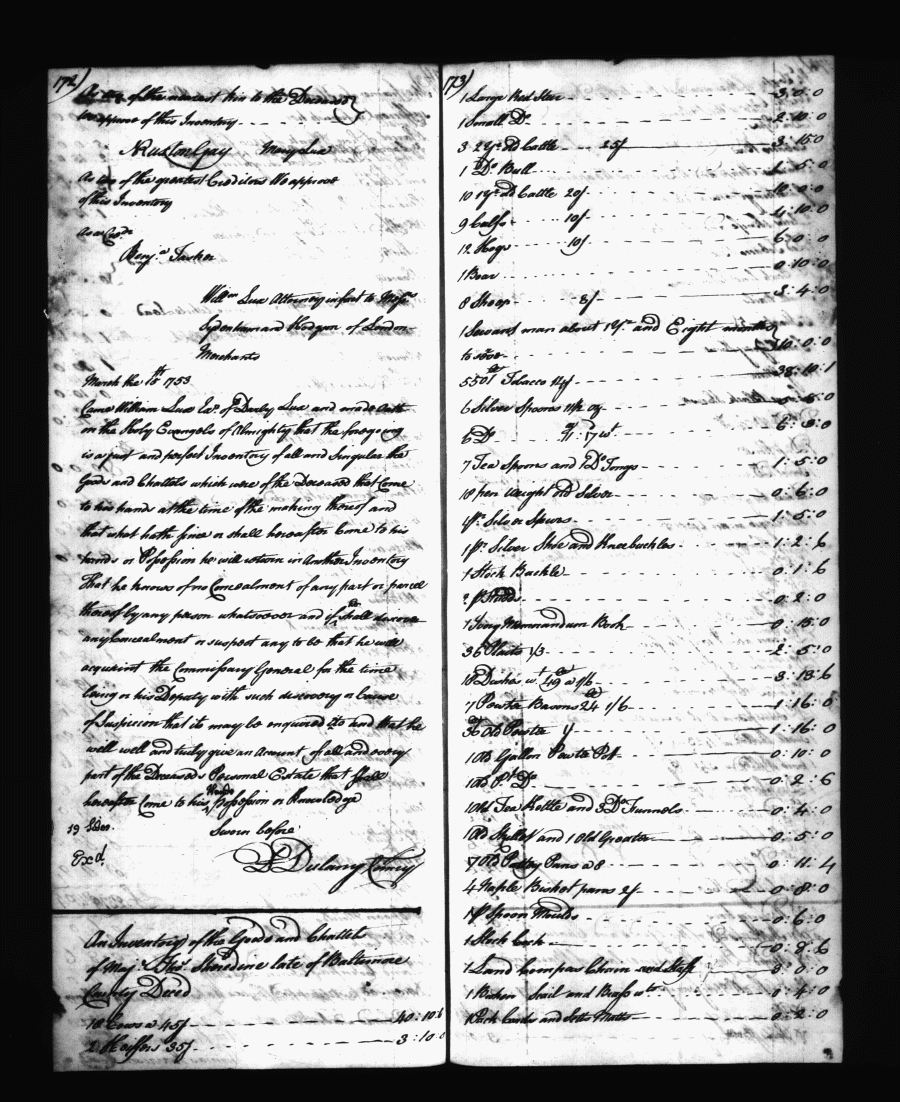 172)
As two of the nearest kin to the Deceased
We approve of this Inventory
N. Ruxton Gay Mary Lux
As two of the greatest Creditors We approve
of this Inventory
Benja. Tasker
Willm. Lux Attorney in fact to Messrs.
Sydenham and Hodgson of London
Merchants
March the 15th 1753
Came William Lux Exr. of Darby Lux and made Oath
on the Holy Evangels of Almighty that the foregoing
is a just and perfect Inventory of all and Singular the
Goods and Chattels which were of the Deceased that Come
to his hands at the time of the making thereof and
that what hath since or shall hereafter Come to his
hands or Possession he will return in Another Inventory
That he knows of no Concealment of any part or parcel
thereof by any person whatsoever and if he shall discover
any Concealment or suspect any to be that he will
acquaint the Commissary General for the time
being or his Deputy with such discovery or Cause
of Suspicion that it may be enquired into And that he
will well and truly give an Account of all and every
part of the Deceased's Personal Estate that shall
hereafter Come to his Hands Possession or Knowledge
19 Sides. Sworn before
Exd. D. Dulany Comry
An Inventory of the Goods and Chattels
of Maj. Thos. Sheredine late of Baltimore
County Deced
18 Cows @ 45/ 40:10:0
2 Heiffers 35/ 3:10:0
173)
1 Large Red Steer 3:0:0
1 Small Do. 2:10:0
3 2 Yr. old Cattle 25/ 3:15:0
1 Do. Bull 1:5:0
10 1 Yr. old Cattle 20/ 10:0:0
9 Calfs 10/ 4:10:0
12 Hogs 10/ 6:0:0
1 Boar 0:10:0
8 Sheep 8/ 3:4:0
1 Servant man about 1 Yr. and Eight months
to serve 10:0:0
5501 lb Tobacco 14/ 38:10:1
6 Silver Spoons 11 1/2 oz
6 Do. 6:8:0
7 Tea Spoons and Do. Tongs 1:5:0
18 pen weight old Silver 0:6:0
1 pr. Silver Spurs 1:5:0
1 pr. Silver Shoe and Kneebuckles 1:2:6
1 Stock Buckle 0:1:6
2 pr Studds 0:2:0
1 Ivory Memorandum Book 0:15:0
36 Plates 1/3 2:5:0
10 Dishes wt. 49 @ 1/6 3:13:6
7 Pewter Basons 24 1/6 1:16:0
36 Old Pewter 1/ 1:16:0
1 Old Gallon Pewter Pot 0:10:0
1 Old Pt. Do. 0:2:6
1 Old Tea Kettle and 3 Do Funnels 0:4:0
1 Old Skillet and 1 Old Greater 0:5:0
7 Old Pattey Pans @ 8 0:11:4
4 Naple Bisket panns 2/ 0:8:0
1 pr Spoon Moulds 0:6:0
1 Stock Lock 0:8:6
1 Land Compass Chain and Staff 3:0:0
1 Broken Scail and Brass wts. 0:4:0
0:2:0